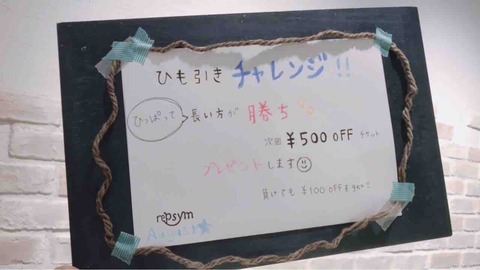 ひも引き チャレンジ!!
ひっぱって 長い方が 勝ち
次回 ¥500 OFF チケット
プレゼントします
負けても ¥100 OFF
repsym